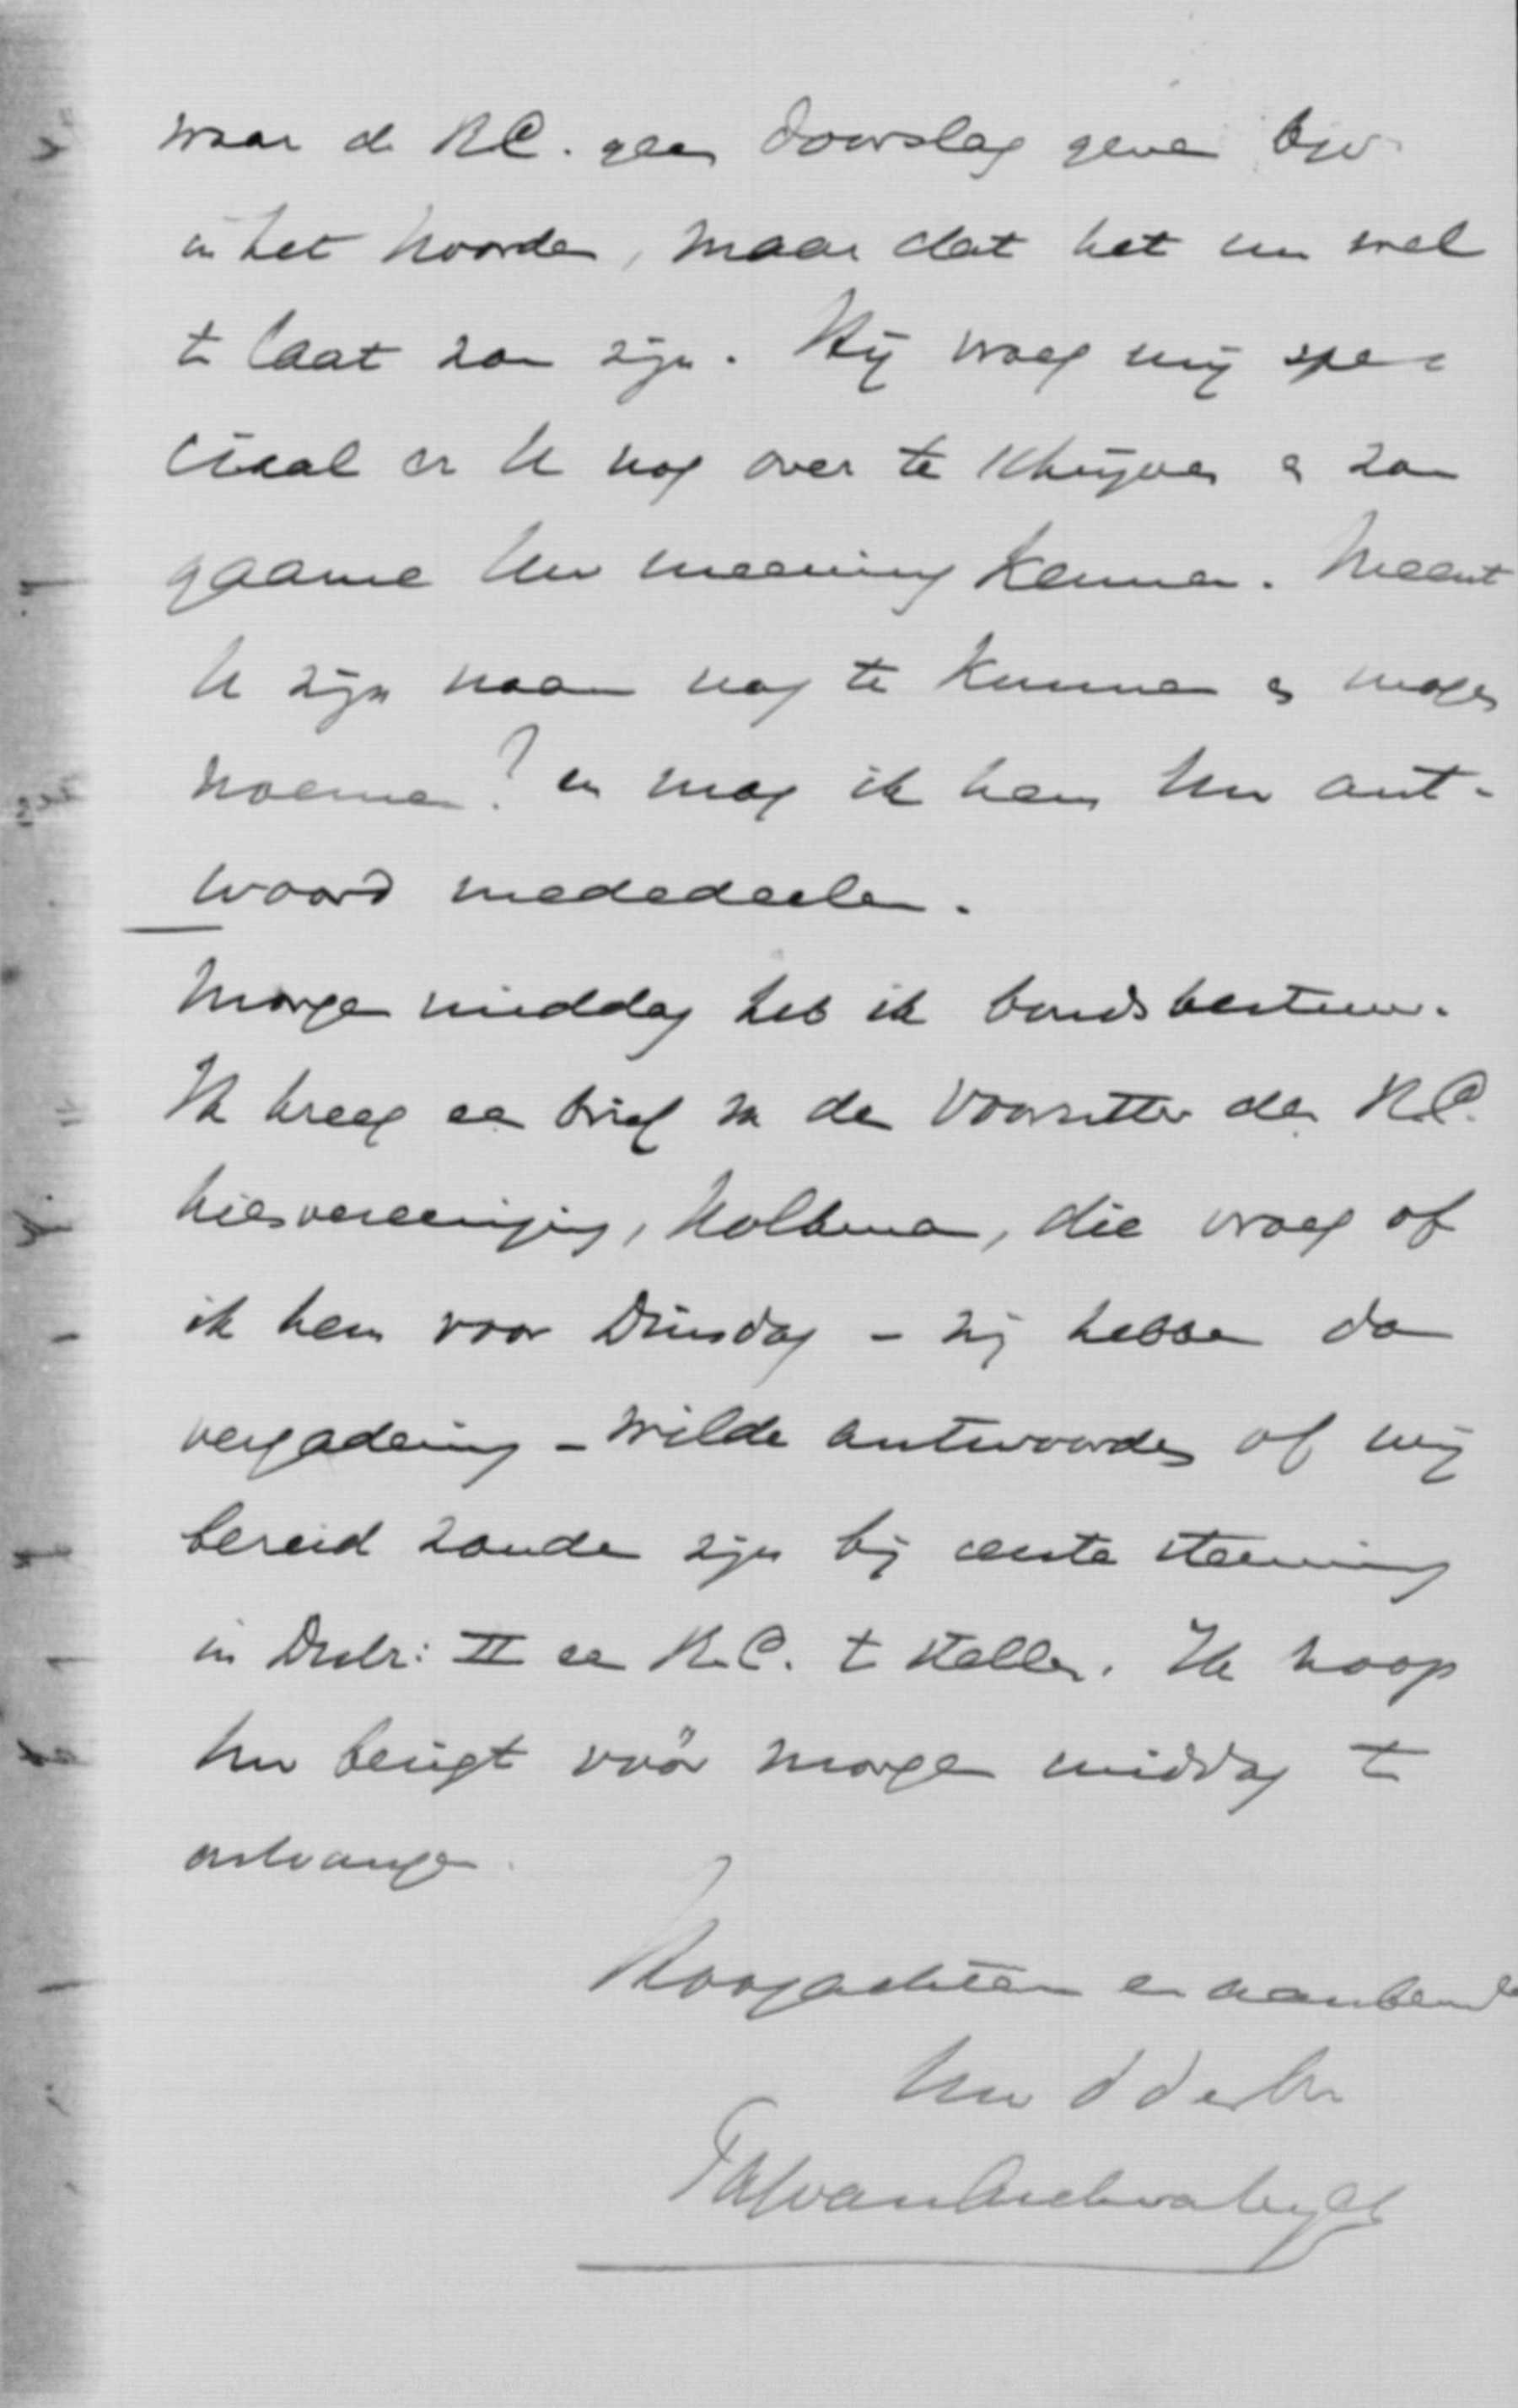 waar de R.C. geen doorslag geven bijv.
in het Noorden, maar dat het nu wel
te laat zou zijn. Hij vroeg mij spe-
ciaal er U nog over te schrijven en zou
gaarne Uw meening kennen. Meent
U zijn naam nog te kunnen en mogen
noemen? en mag ik hem Uw ant-
woord mededeelen.
Morgen middag heb ik bondsbestuur.
Ik kreeg een brief van den Voorzitter der R.C.
kiesvereeniging, , die vroeg of
ik hem voor Dinsdag - zij hebben dan
vergadering - wilde antwoorden of wij
bereid zouden zijn bij eerste stemming
in Distr: II een R.C. te stellen. Ik hoop
Uw berigt vóór morgen middag te
ontvangen.
Hoogachtend en
Uw